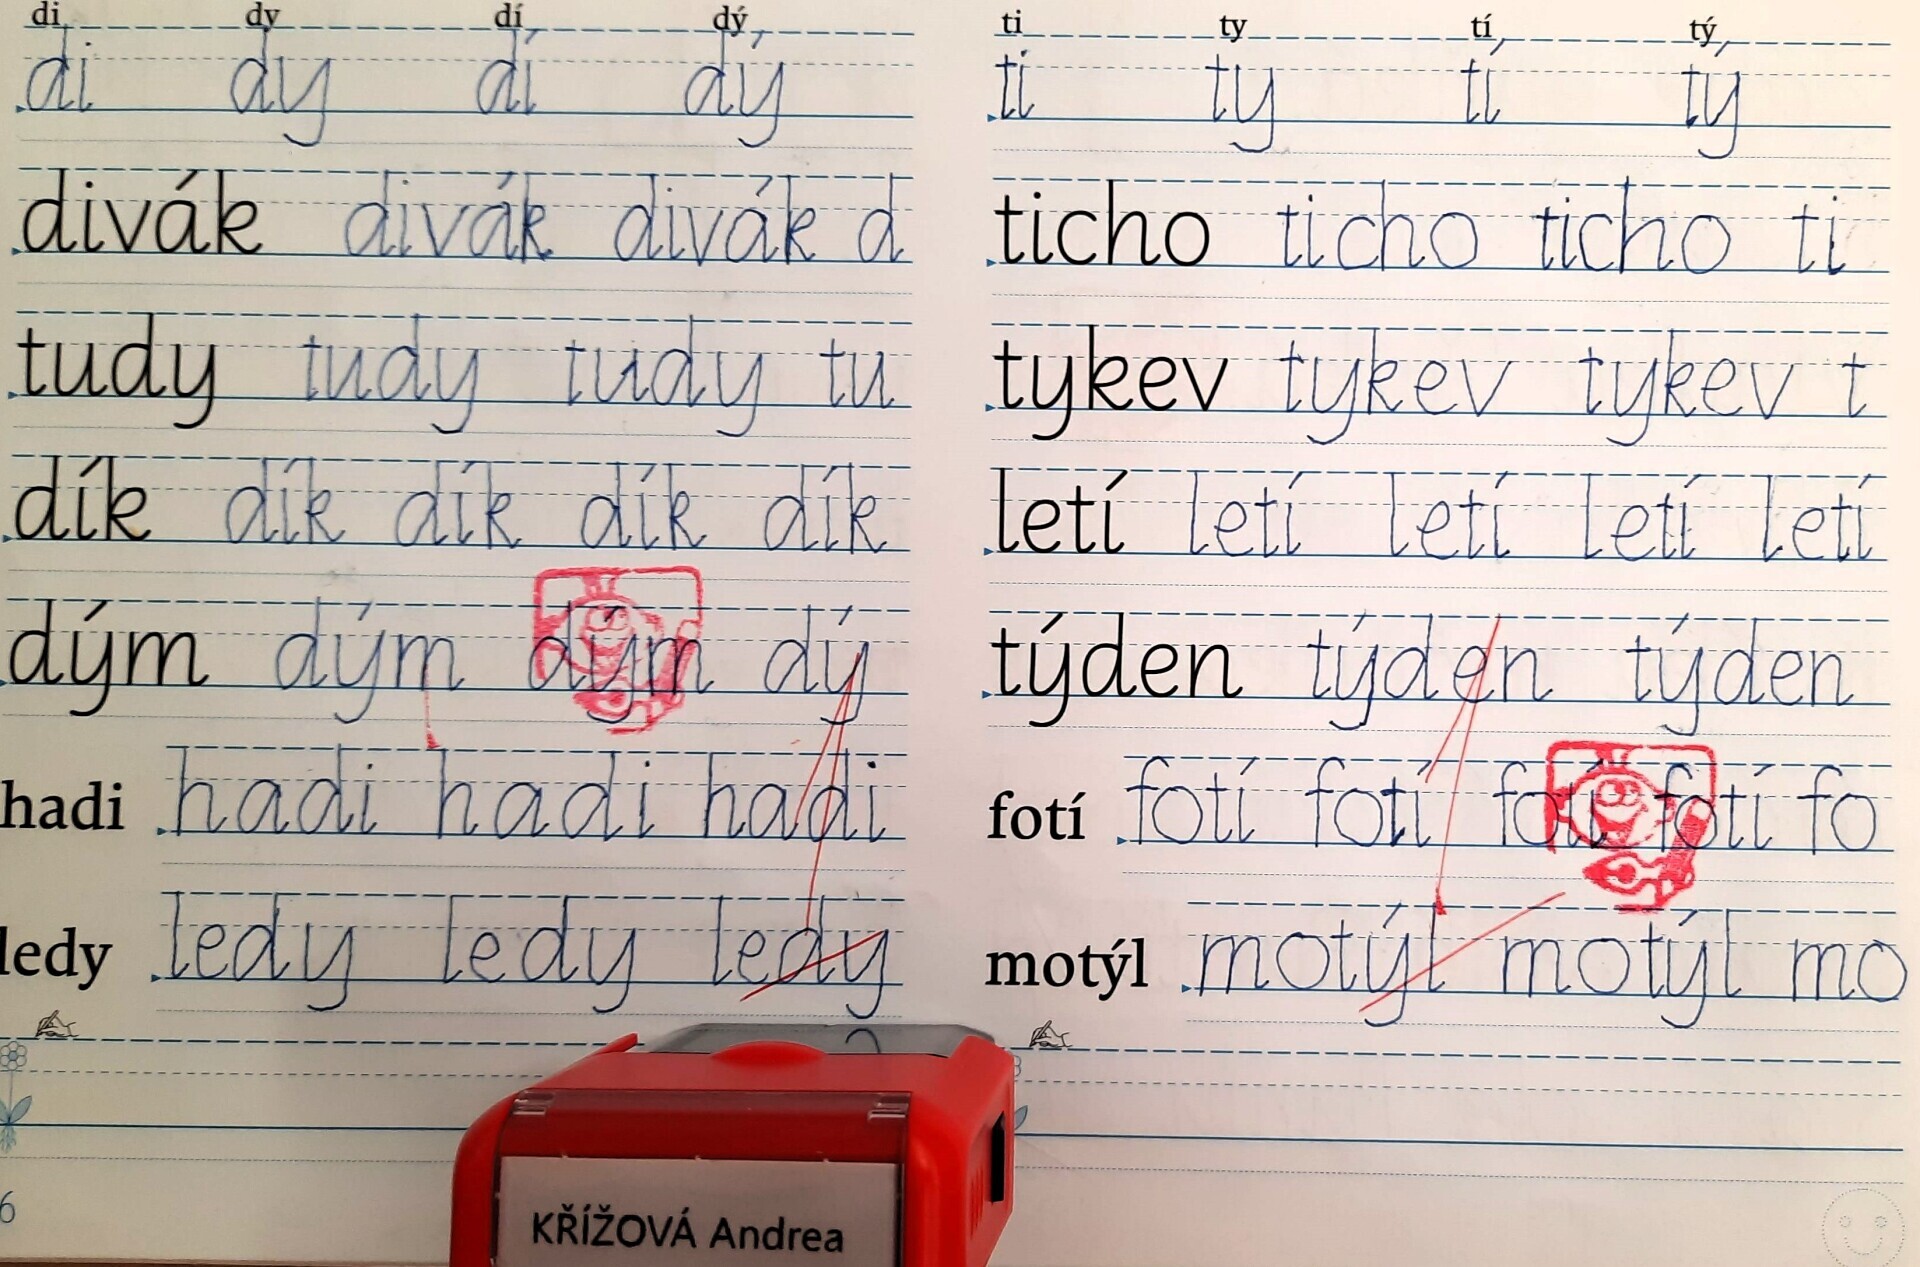 di dy dí dý
di dy dí dý
divák divák divák d
tudy tudy tudy tu
dík dík dík dík dík
dým dým dým dý
hadi hadi hadi hadi
ledy ledy ledy ledy
6
ti ty tí tý
ti ty tí tý
ticho ticho ticho ti
tykev tykev tykev t
letí letí letí letí letí
týden týden týden
fotí fotí fotí fotí fotí fo
motýl motýl motýl mo
KŘÍŽOVÁ Andrea